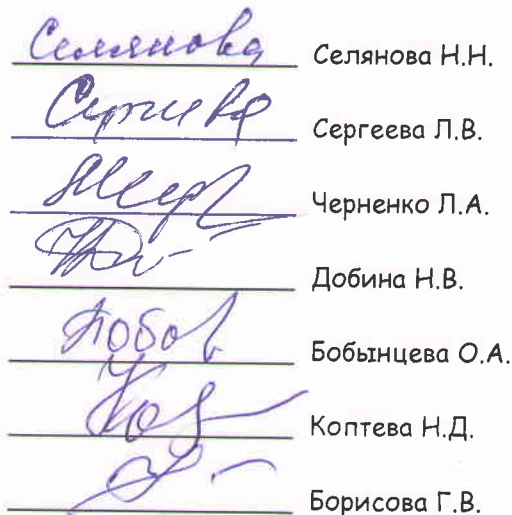 Селянова Селянова Н.Н.
Сергеева Сергеева Л.В.
Черненко Л.А.
Добина Н.В.
Бобынцева О.А.
Коптева Н.Д.
Борисова Г.В.